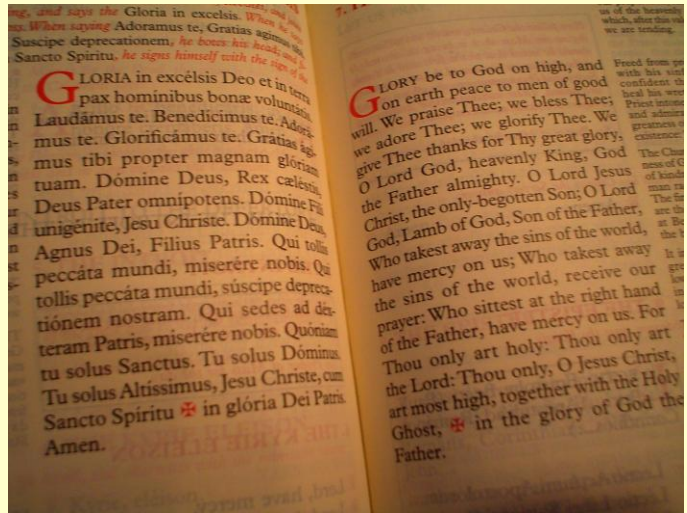 and says the Gloria in excelsis. When he
When saying Adoramus te, Gratias agimus
Suscipe deprecationem, he bows his head; and
Sancto Spiritu, he signs himself with the sign of the
GLORIA in excélsis Deo et in terra
pax homínibus bonæ voluntátis.
Laudámus te. Benedícimus te. Adorá-
mus te. Glorificámus te. Grátias ági-
mus tibi propter magnam glóriam
tuam. Dómine Deus, Rex cæléstis,
Deus Pater omnípotens. Dómine Fili
unigénite, Jesu Christe. Dómine Deus,
Agnus Dei, Fílius Patris. Qui tollis
peccáta mundi, miserére nobis. Qui
tollis peccáta mundi, súscipe depreca-
tiónem nostram. Qui sedes ad déx-
teram Patris, miserére nobis. Quóniam
tu solus Sanctus. Tu solus Dóminus.
Tu solus Altíssimus, Jesu Christe, cum
Sancto Spíritu ✠ in glória Dei Patris.
Amen.
GLORY be to God on high, and
on earth peace to men of good
will. We praise Thee; we bless Thee;
we adore Thee; we glorify Thee. We
give Thee thanks for Thy great glory,
O Lord God, heavenly King, God
the Father almighty. O Lord Jesus
Christ, the only-begotten Son; O Lord
God, Lamb of God, Son of the Father,
Who takest away the sins of the world,
have mercy on us; Who takest away
the sins of the world, receive our
prayer: Who sittest at the right hand
of the Father, have mercy on us. For
Thou only art holy: Thou only art
the Lord: Thou only, O Jesus Christ,
art most high, together with the Holy
Ghost, ✠ in the glory of God the
Father.
us of the heavenly
which, after this
we are tending.
Freed from
with his
confident
heal his
Priest
and
greatness
existence:
The
ness of
of
man
The
are
at
the
It